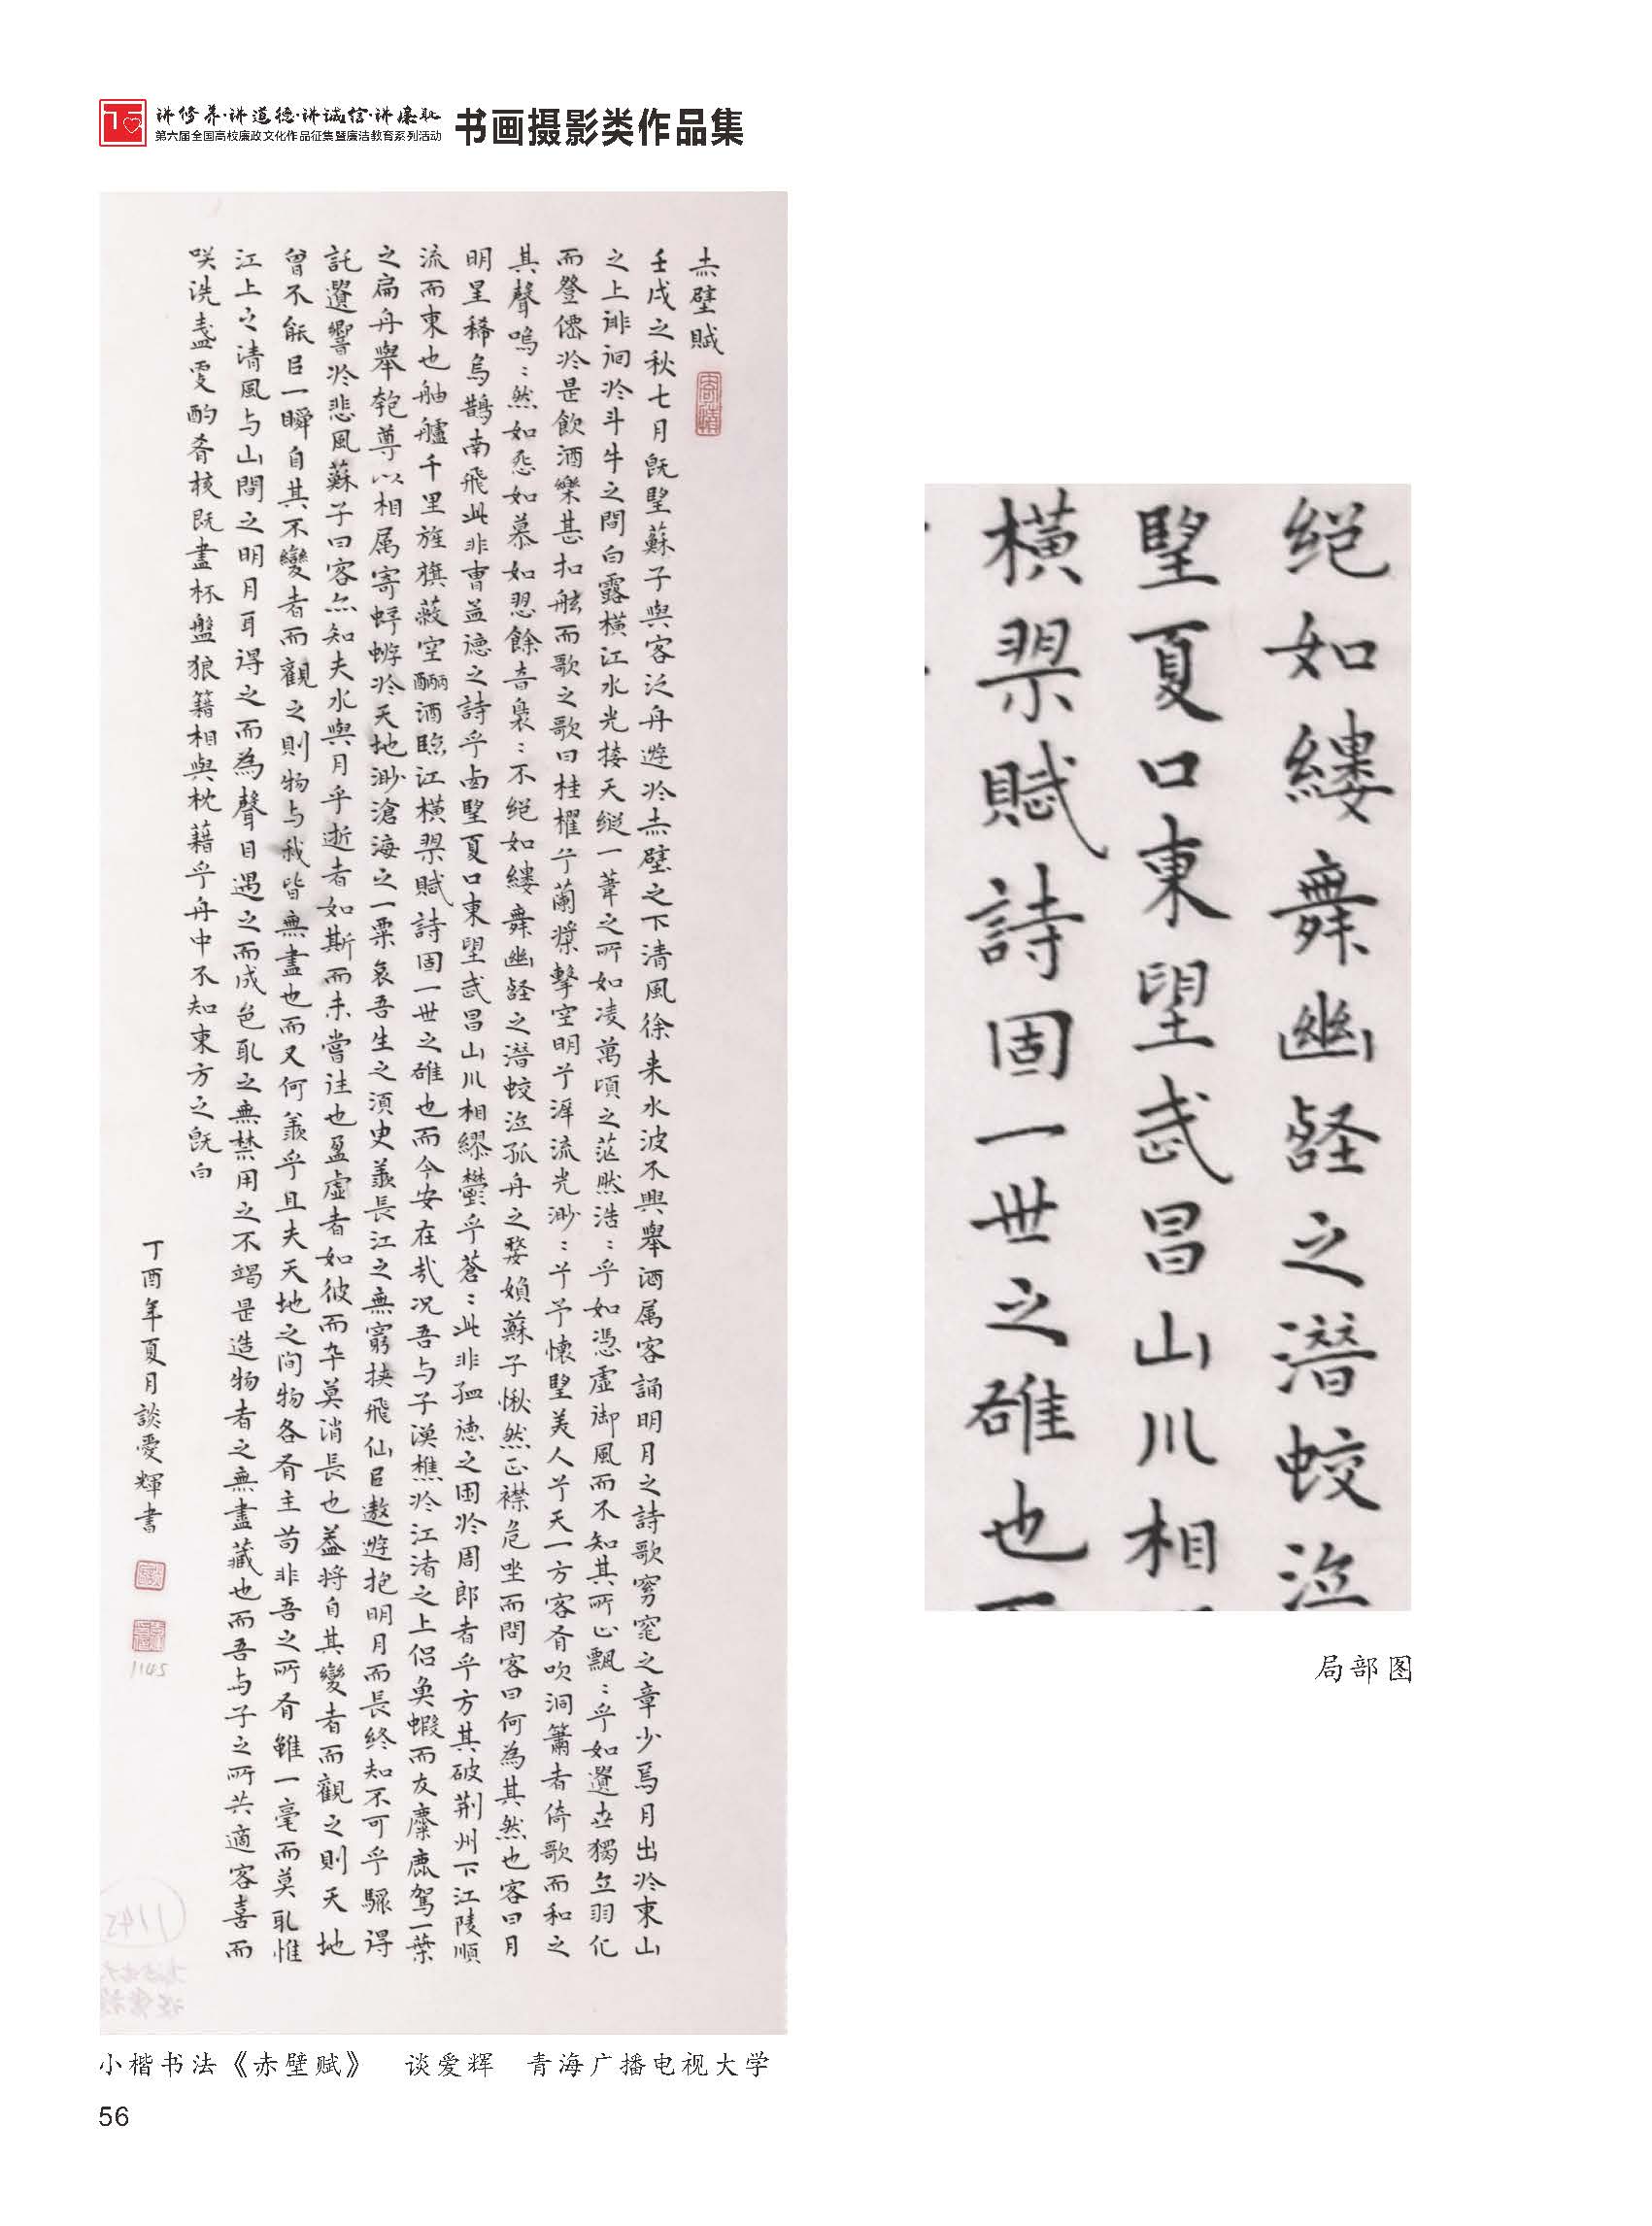 讲修养·讲道德·讲诚信·讲廉耻
第六届全国高校廉政文化作品征集暨廉洁教育系列活动
书画摄影类作品集
赤壁賦
壬戌之秋七月既望蘇子與客泛舟遊於赤壁之下清風徐来水波不興舉酒属客誦明月之詩歌窈窕之章少焉月出於東山
之上徘徊於斗牛之間白露橫江水光接天縱一葦之所如凌萬頃之茫然浩：乎如馮虛御風而不知其所止飄：乎如遺世獨立羽化
而登僊於是飲酒樂甚扣舷而歌之歌曰桂櫂兮蘭槳擊空明兮泝流光渺：兮予懷望美人兮天一方客有吹洞簫者倚歌而和之
其聲嗚：然如怨如慕如餘音裊：不絕如縷舞幽壑之潛蛟泣孤舟之嫠蘇子愀然正襟危坐而問客曰何為其然也客曰月
明星稀烏鵲南飛此非曹孟德之詩乎西望夏口東望武昌山川相繆鬱乎蒼：此非孟德之困於周郎者乎方其破荆州下江陵順
流而東也舳艫千里旌旗蔽空釃酒臨江橫槊賦詩固一世之雄也而今安在哉况吾与子漁樵於江渚之上侣魚蝦而友麋鹿駕一葉
之扁舟舉匏尊以相属寄蜉蝣於天地渺滄海之一粟哀吾生之須臾羡長江之無窮挟飛仙以遨遊抱明月而長終知不可乎驟得
託遺響於悲風蘇子曰客亦知夫水與月乎逝者如斯而未嘗往也盈虛者如彼而卒莫消長也蓋將自其變者而觀之則天地
曾不能以一瞬自其不變者而觀之則物与我皆無盡也而又何羡乎且夫天地之间物各有主苟非吾之所有雖一毫而莫取惟
江上之清風与山間之明月耳得之而為聲目遇之而成色取之無禁用之不竭是造物者之無盡藏也而吾与子之所共適客喜而
笑洗盞更酌肴核既盡杯盤狼籍相與枕藉乎舟中不知東方之既白
丁酉年夏月談愛輝書
1145
绝如縷舞幽壑之潛蛟泣
望夏口東望武昌山川相
橫槊賦詩固一世之雄也
局部图
小楷书法《赤壁赋》 谈爱辉 青海广播电视大学
56